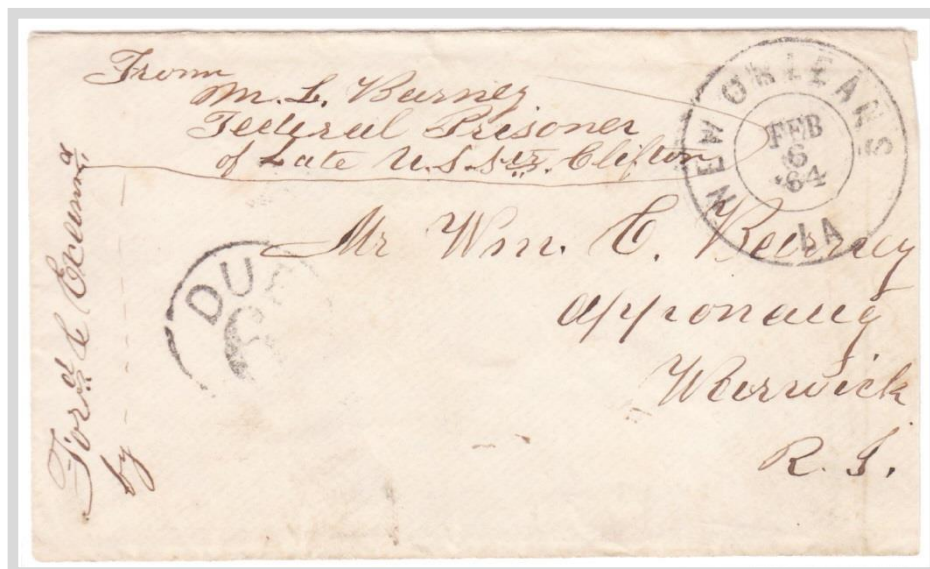 From
M. L. Burney
Federal Prisoner
of Late U.S. Str. Clifton
NEW ORLEANS
FEB
6
64
LA
DUE
Mr Wm. C. Burney
Apponaug
Warwick
R. I.
Forᵈ & Exaᵐᵈ
by